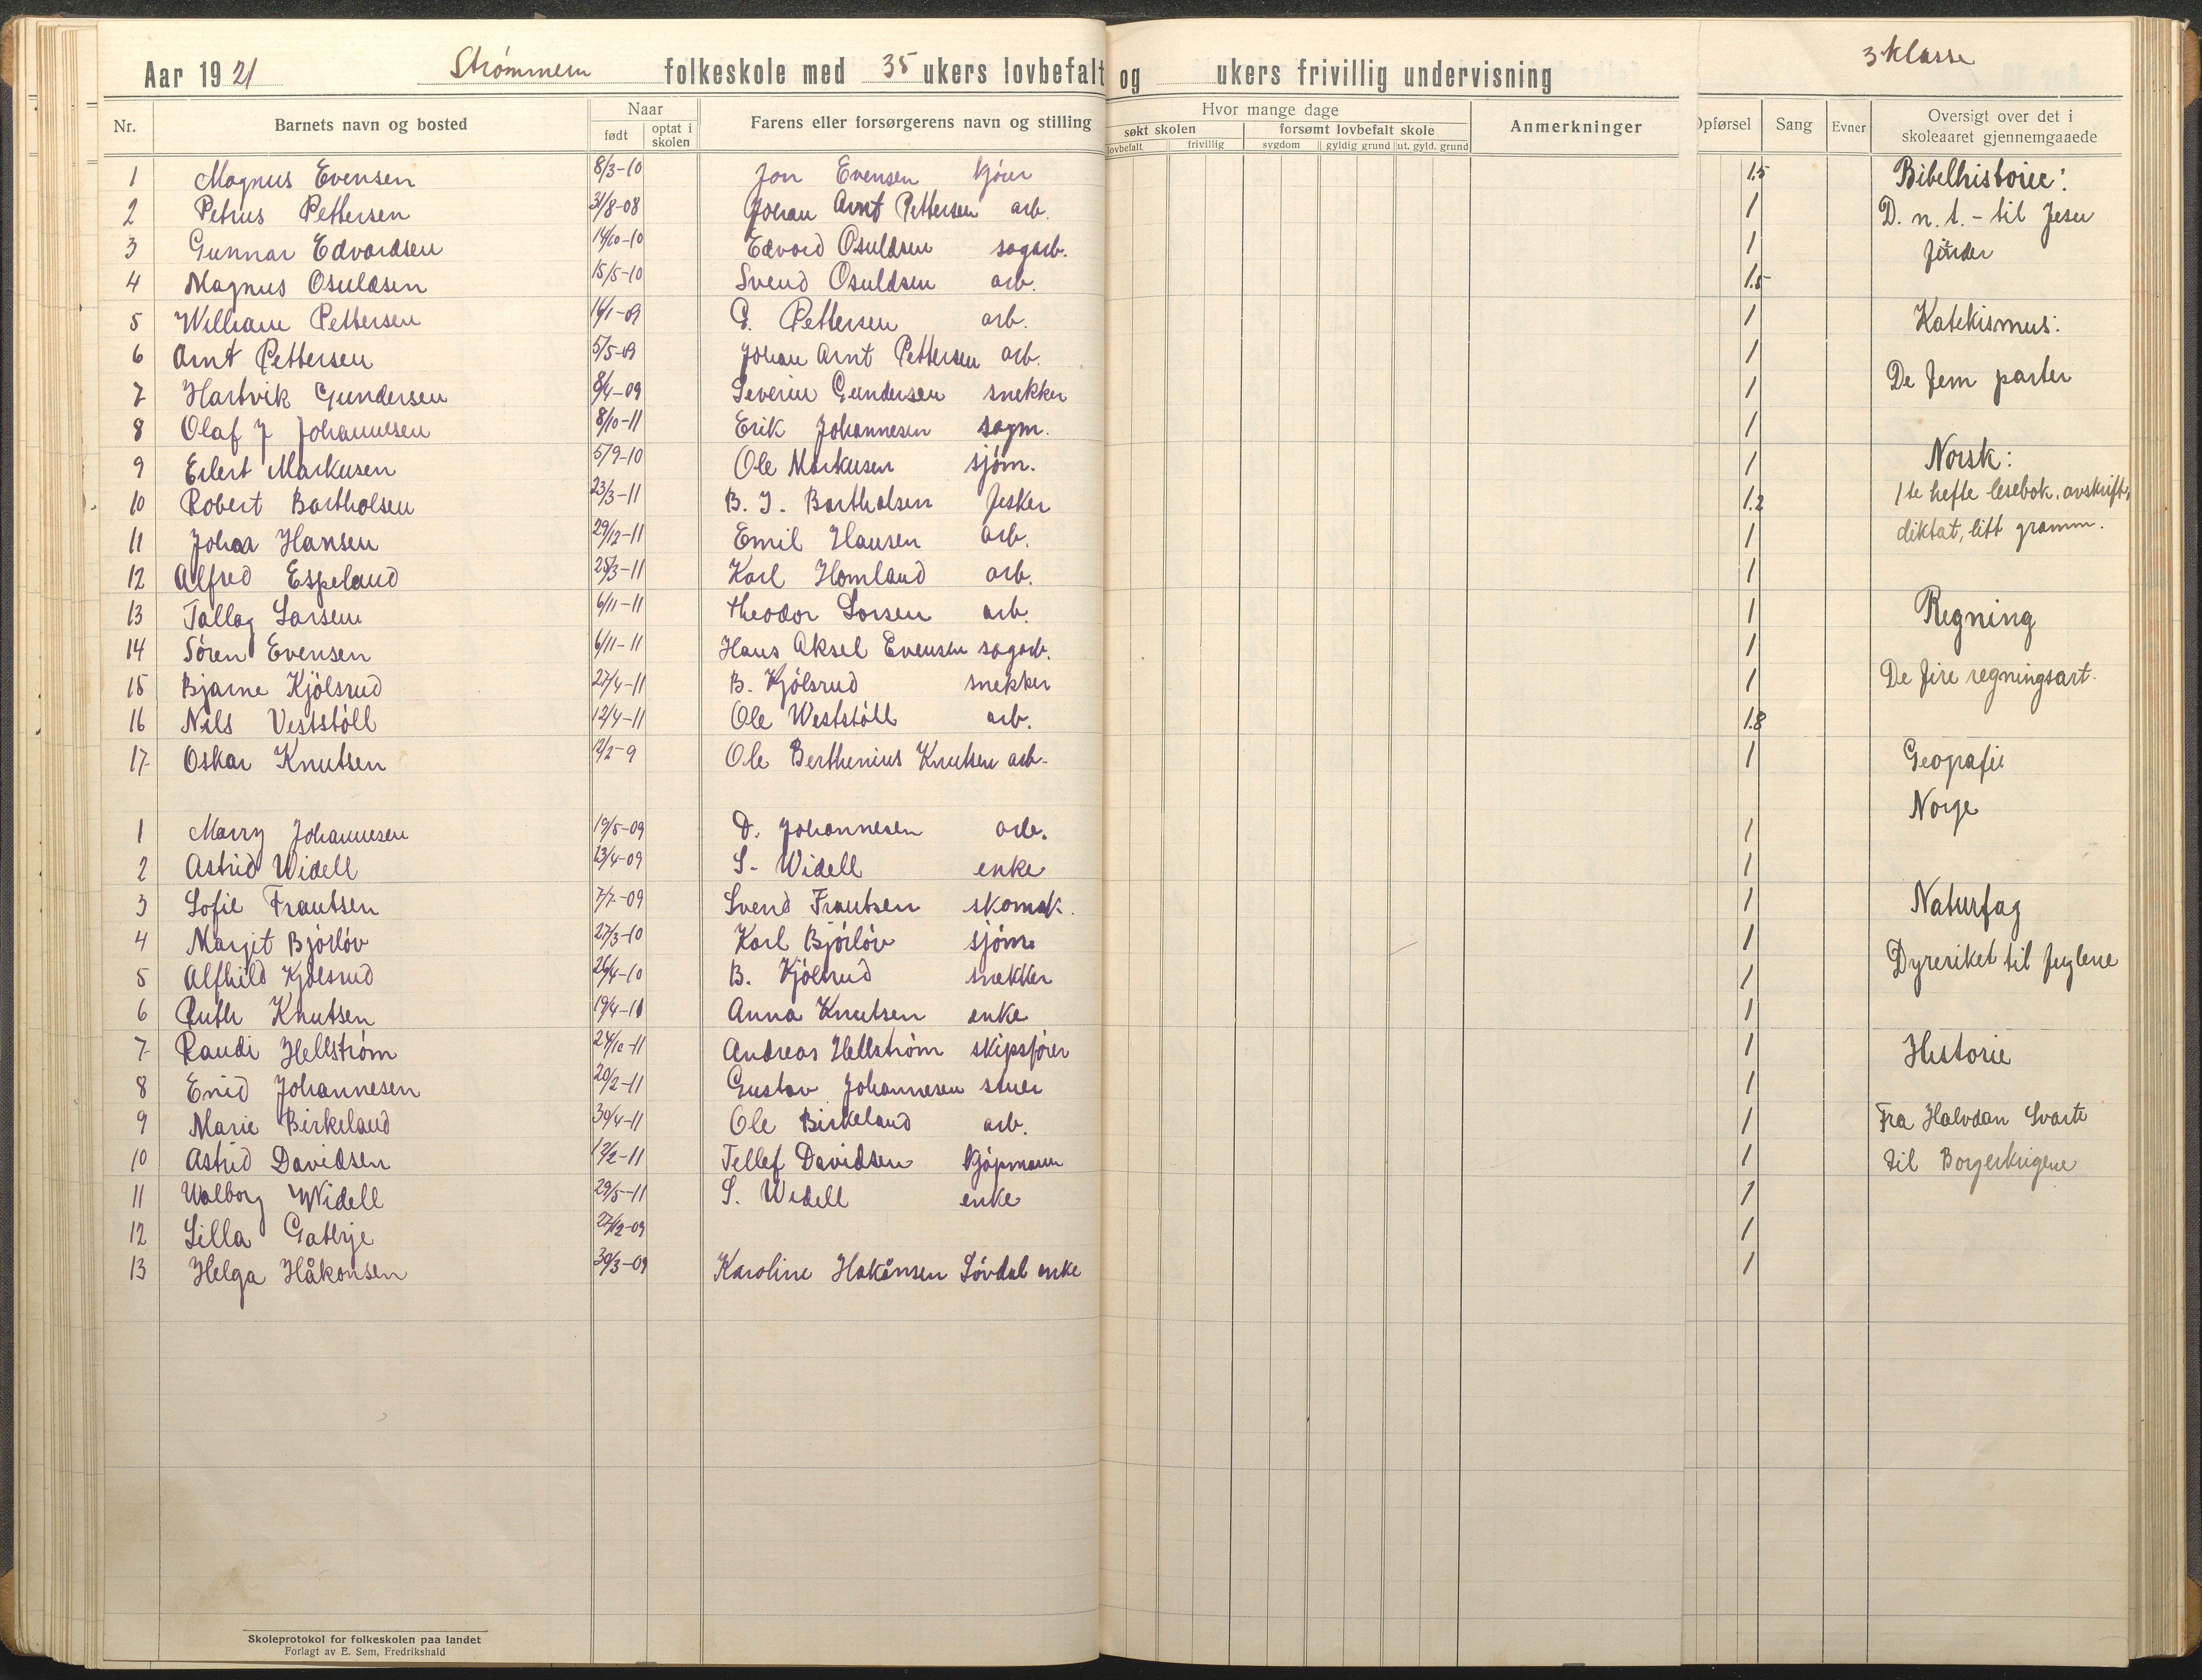 Aar 1921 Strømmen folkeskole med 35 ukers lovbefalt og ukers frivillig undervisning
3 klasse
Nr. Barnets navn og bosted Naar født optat i skolen Farens eller forsørgerens navn og stilling Hvor mange dage søkt skolen lovbefalt frivillig forsømt lovbefalt skole sygdom gyldig grund ut. gyld. grund Anmerkninger Opførsel Sang Evner Oversigt over det i skoleaaret gjennemgaaede
1 Magnus Evensen 8/3-10 Jon Evensen kjører 1.5 Bibelhistorie:
2 Petrus Pettersen 31/8-08 Johan Arnt Pettersen arb. 1 D. n. t. - til Jesu
3 Gunnar Edvardsen 14/10-10 Edvard Osuldsen sagarb. 1
4 Magnus Osuldsen 15/5-10 Svend Osuldsen arb. 1.5
5 William Pettersen 16/1-09 G. Pettersen arb. 1 Katekismus:
6 Arnt Pettersen 5/5-09 Johan Arnt Pettersen arb. 1
7 Hartvik Gundersen 8/4-09 Severin Gundersen snekker 1 De fem parter
8 Olaf J Johannesen 8/10-11 Erik Johannesen sagm. 1
9 Eilert Markusen 5/9-10 Ole Markusen sjóm. 1 Norsk:
10 Robert Bartholsen 23/3-11 B. J. Bartholsen fisker 1.2 1te hefte lesebok, avskrift,
11 Johan Hansen 29/12-11 Emil Hansen arb. 1 diktat, litt gramm.
12 Alfred Espeland 25/3-11 Karl Homland arb. 1
13 Tallag Larsen 6/11-11 Theodor Larsen arb. 1 Regning
14 Sören Evensen 6/11-11 Hans Aksel Evensen sagarb. 1
15 Bjarne Kjölsrud 27/4-11 B. Kjölsrud snekker 1 De fire regningsart.
16 Nils Veststöll 12/4-11 Ole Weststöll arb. 1.8
17 Oskar Knutsen 12/2-9 Ole Berthenius Knutsen arb. 1 Geografi
Norge
1 Marry Johannesen 19/5-09 D. Johannesen arb. 1
2 Astrid Widell 23/4-09 S. Widell enke 1
3 Sofie Frantsen 7/7-09 Svend Frantsen skomak. 1 Naturfag
4 Margit Bjórlöv 27/3-10 Karl Bjórlöv sjóm. 1 Dyreriket til fuglene
5 Alfhild Kjölsrud 26/4-10 B. Kjölsrud snekker 1
6 Ruth Knutsen 19/4-10 Anna Knutsen enke 1
7 Randi Hellström 24/10-11 Andreas Hellström skipsfører 1 Historie
8 Enid Johannesen 20/2-11 Gustav Johannesen stuer 1
9 Marie Birkeland 30/4-11 Ole Birkeland arb. 1 Fra Halvdan Svarte
10 Astrid Davidsen 12/2-11 Tellef Davidsen kjöpmann 1 til Borgerkrigene
11 Walborg Widell 29/5-11 S. Widell enke 1
12 Lilla Gathje 27/12-09 1
13 Helga Håkonsen 30/3-09 Karoline Hakånsen Lövdal enke 1
Skoleprotokol for folkeskolen paa landet
Forlagt av E. Sem, Fredrikshald